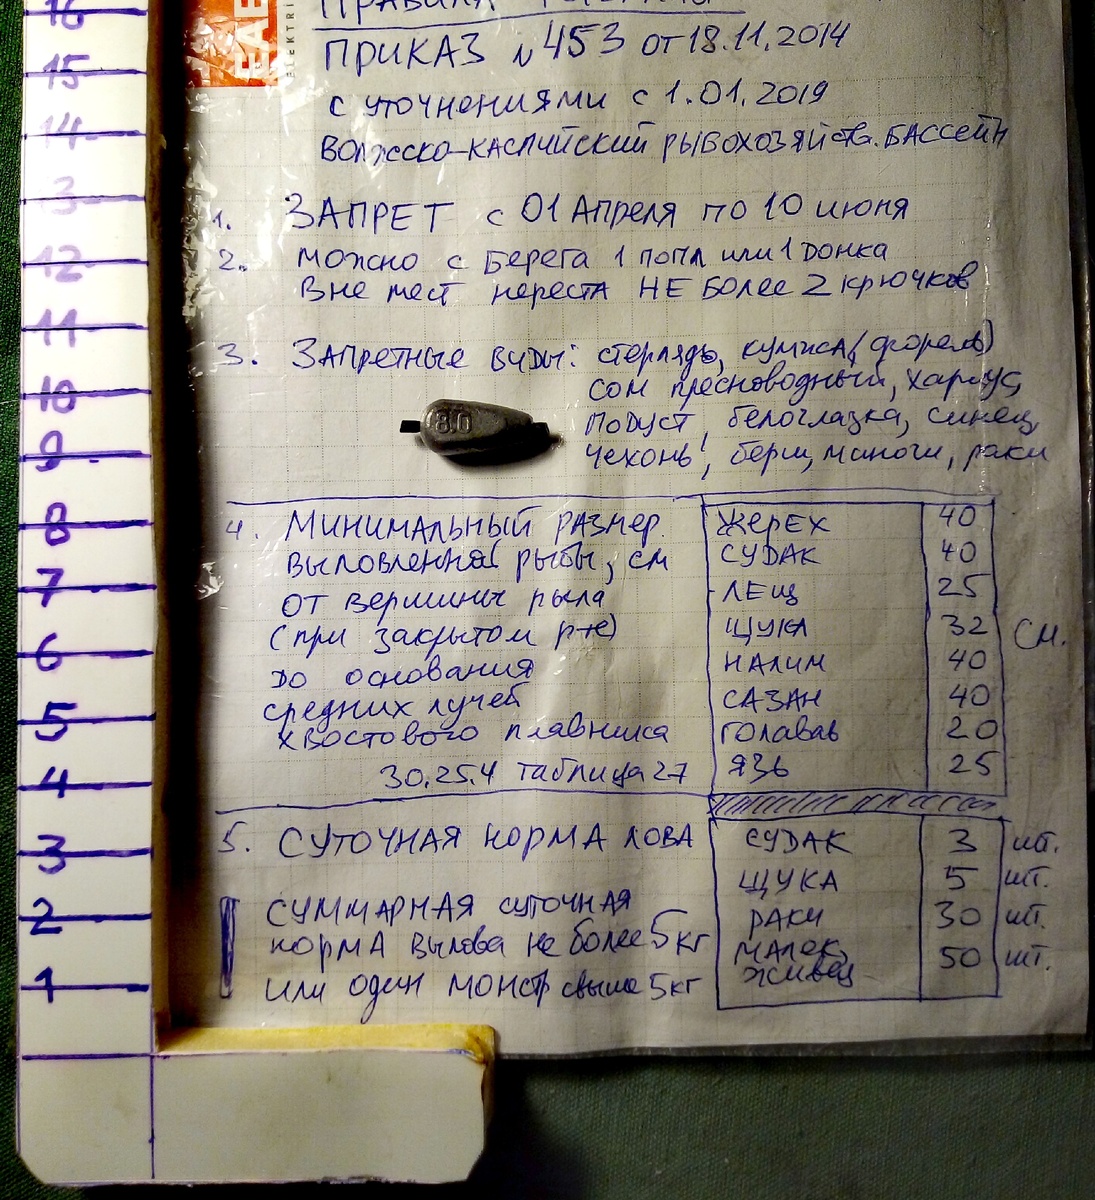 ПРАВИЛА
ПРИКАЗ N 453 от 18.11.2014
с уточнениями с 1.01.2019
ВОЛЖСКО-КАСПИЙСКИЙ РЫБОХОЗЯЙСТВ. БАССЕЙН
1. ЗАПРЕТ с 01 Апреля по 10 июня
2. можно с Берега 1 попл или 1 донка
вне мест нереста НЕ Более 2 крючков
3. Запретные виды: стерлядь, кумжа (форель)
сом пресноводный, хариус,
подуст, белоглазка, синец
чехонь, берш, миноги, раки
8.0
4. МИНИМАЛЬНЫЙ РАЗМЕР
выловленной рыбы, см
от вершины рыла
(при закрытом рте)
до основания
средних лучей
хвостового плавника
30.25.4 таблица 27
ЖЕРЕХ 40
СУДАК 40
ЛЕЩ 25
ЩУКА 32 см.
НАЛИМ 40
САЗАН 40
ГОЛАВЛЬ 20
ЯЗЬ 25
5. СУТОЧНАЯ НОРМА ЛОВА
СУММАРНАЯ суточная
норма вылова не более 5 кг
или один монстр свыше 5 кг
СУДАК 3 шт.
ЩУКА 5 шт.
РАКИ 30 шт.
МАЛЕК, живец 50 шт.
16
15
14
13
12
11
10
9
8
7
6
5
4
3
2
1